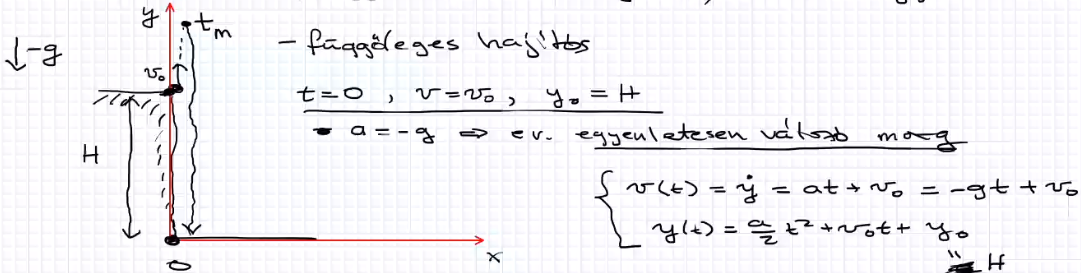 y
t_m
↓-g
- függőleges hajítás
v₀
t=0 , v=v₀ , y₀=H
- a=-g ⇒ ev. egyenletesen változó mozg
H
v(t) = ẏ = at + v₀ = -gt + v₀
y(t) = a/2 t² + v₀t + y₀
" H
x
0